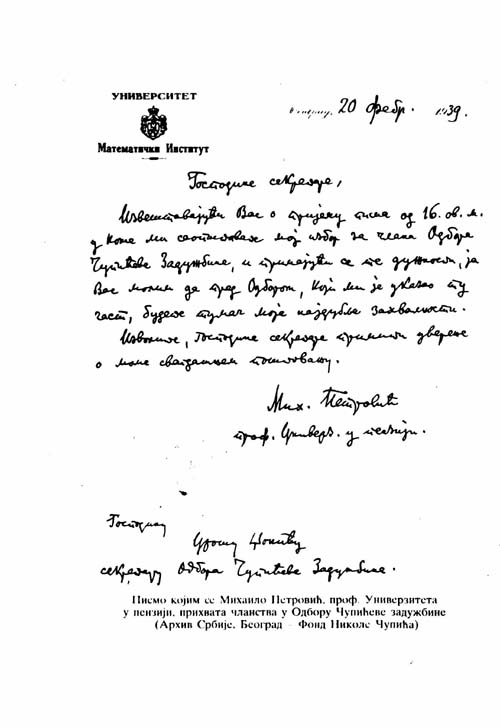 УНИВЕРСИТЕТ
Математички Институт
20 фебр. 1939.
Господине секретаре,
Извештавајући Вас о пријему писма од 16. ов. м.
у коме ми саопштавате мој избор за члана Одбора
Чупићеве Задужбине, и примајући се те дужности, ја
Вас молим да пред Одбором, који ми је указао ту
част, будете тумач моје најдубље захвалности.
Изволите, Господине секретаре примити уверење
о моме поштовању.
Мих. Петровић
проф. Универз. у пензији.
Господину
Урошу
секретару Одбора Чупићеве Задужбине.
Писмо којим се Михаило Петровић, проф. Универзитета
у пензији, прихвата чланства у Одбору Чупићеве задужбине
(Архив Србије, Београд – Фонд Николе Чупића)